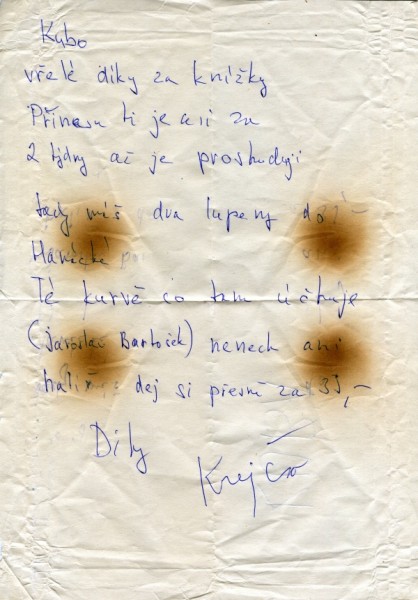 Kubo
vřelé díky za knížky
Přinesu ti je asi za
2 týdny až je prostuduji
tady máš dva lupeny
Té kurvě co tam účtuje
(Jaroslav Bartošek) nenech ani
halíř dej si přesně za 33,-
Díky
Krejča